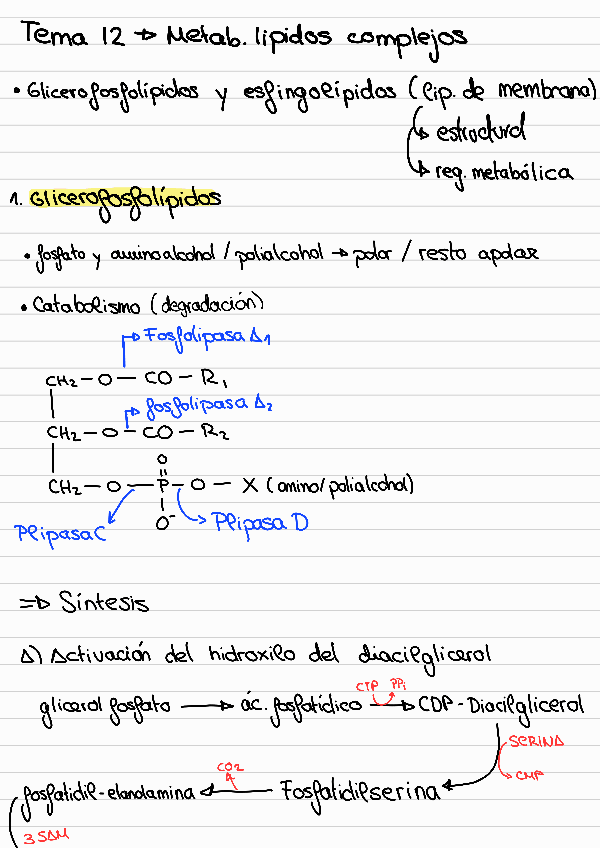 Tema 12 → Metab. lípidos complejos
• Glicerofosfolípidos y esfingolípidos (lip. de membrana)
↳ estructural
↳ reg. metabólica
1. Glicerofosfolípidos
• fosfato y aminoalcohol / polialcohol → polar / resto apolar
• Catabolismo (degradación)
Fosfolipasa A1
CH2 – O – CO – R1
fosfolipasa A2
CH2 – O – CO – R2
O
CH2 – O – P – O – X (amino/polialcohol)
O-
Plipasa C
Plipasa D
⇒ Síntesis
A) Activación del hidroxilo del diacilglicerol
CTP PPi
glicerol fosfato → ác. fosfatídico → CDP-Diacilglicerol
SERINA
CO2
CMP
fosfatidil-etanolamina ← Fosfatidilserina
3 SAM